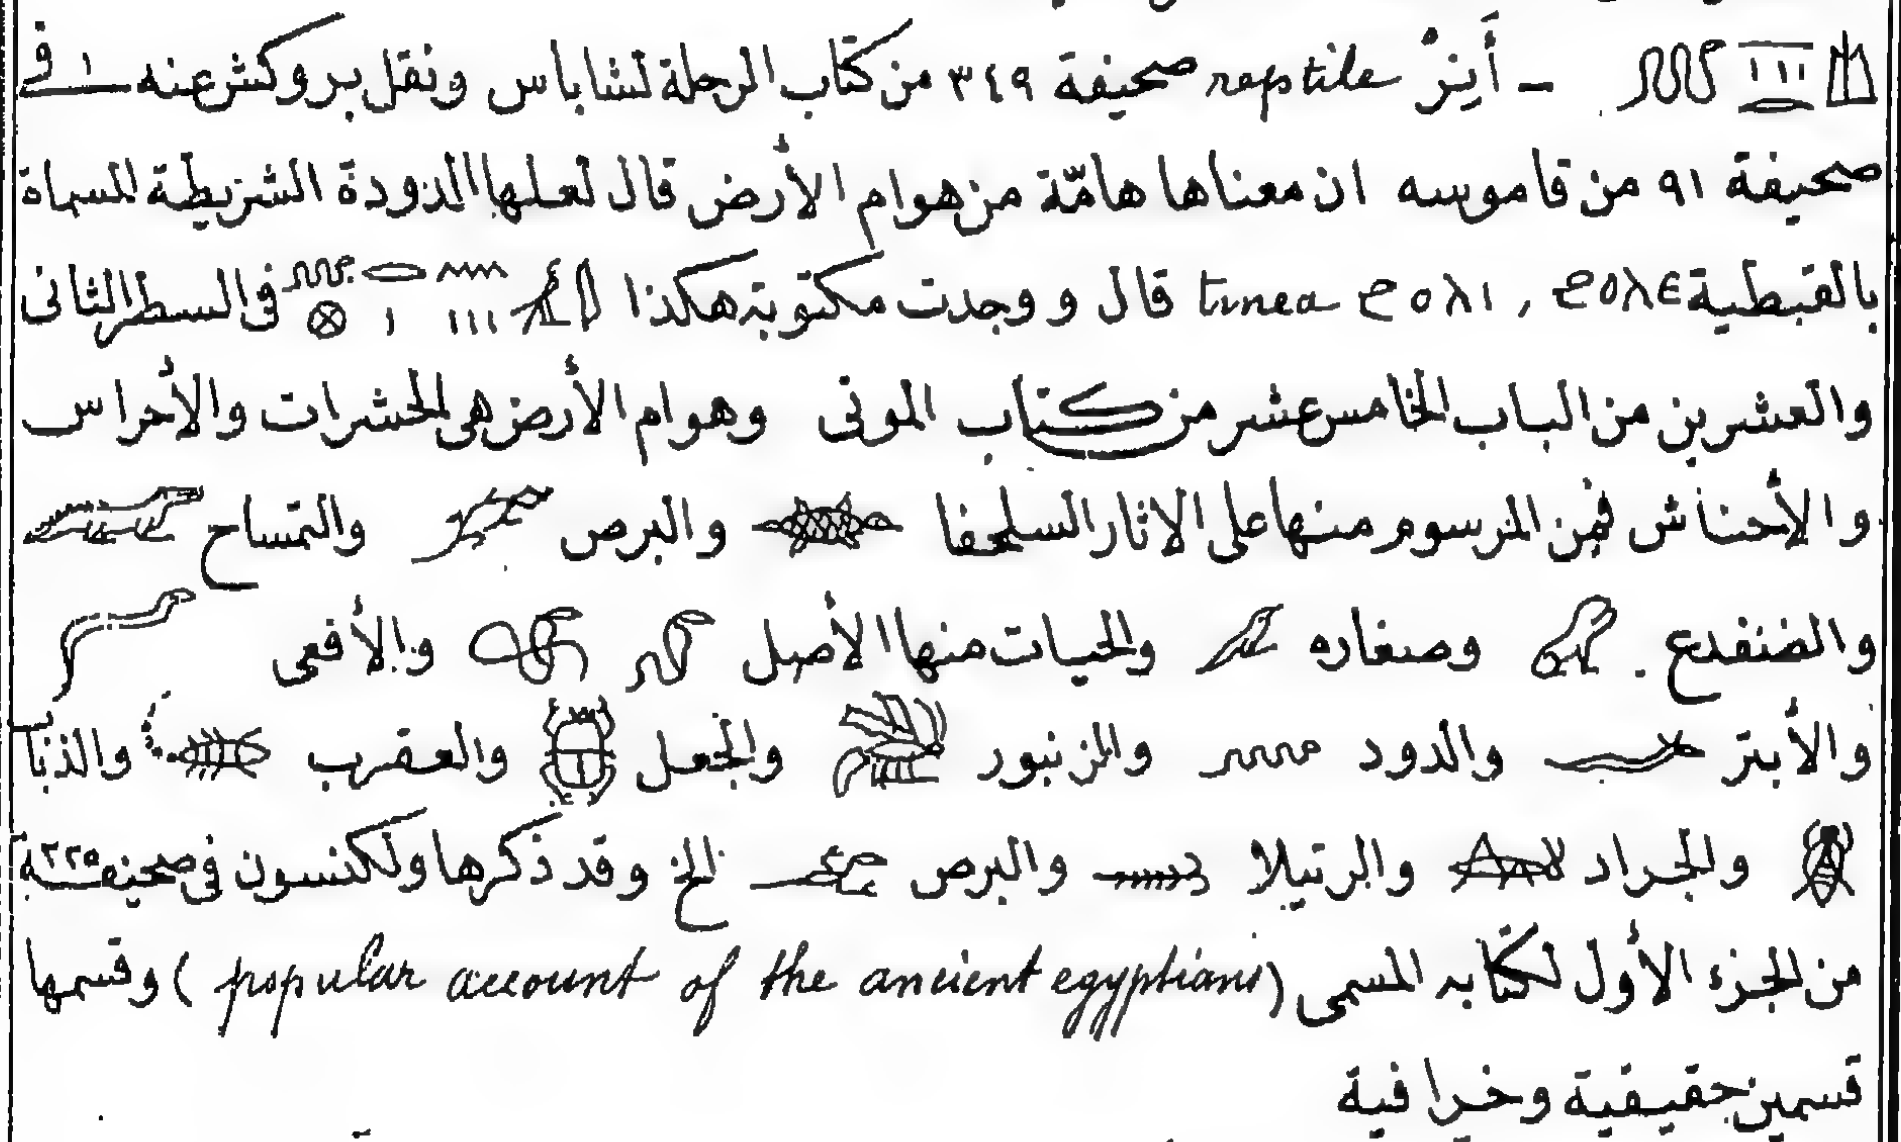 ـ أَيِزُ reptile صحيفة ٣٤٩ من كتاب الرحلة لشاباس ونقل بروكش عنه ا في
صحيفة ٩١ من قاموسه ان معناها هامّة من هوام الأرض قال لعلها الدودة الشريطية المسماة
بالقبطية ϩⲟⲗⲉ , ϩⲟⲗⲓ tinea قال ووجدت مكتوبة هكذا في السطر الثانى
والعشرين من الباب الخامس عشر من كتاب الموتى وهوام الأرض هى الحشرات والأحراس
والأحناش فمن المرسوم منها على الاثار السلحفا والبرص والتمساح
والضنفدع وصغاره والحيات منها الأصل والأفعى
والأبتر والدود والزنبور والجعل والعقرب والذباب
والجراد والرتيلا والبرص الخ وقد ذكرها ولكنسون في صحيفة ٢٢٥
من الجزء الأول لكتابه المسمى (popular account of the ancient egyptians) وقسمها
قسمين حقيقية وخرافية